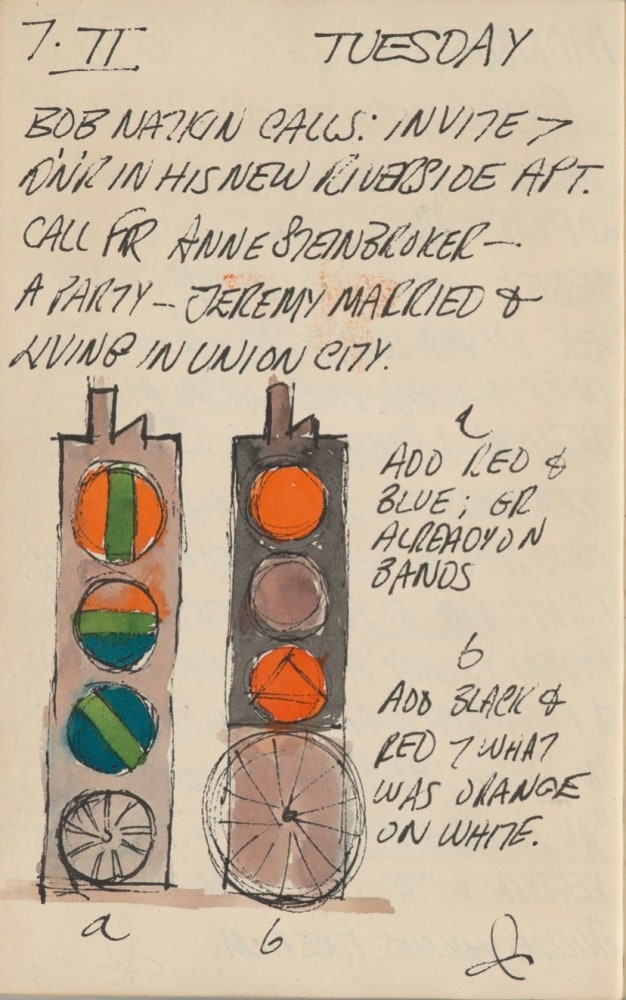 7. II TUESDAY
BOB NATKIN CALLS: INVITE >
DNR IN HIS NEW RIVERSIDE APT.
CALL FR ANNE STEINBROKER —
A PARTY — JEREMY MARRIED &
LIVING IN UNION CITY.
a
ADD RED &
BLUE; GR
ALREADY ON
BANDS
b
ADD BLACK &
RED 7 WHAT
WAS ORANGE
ON WHITE.
a b